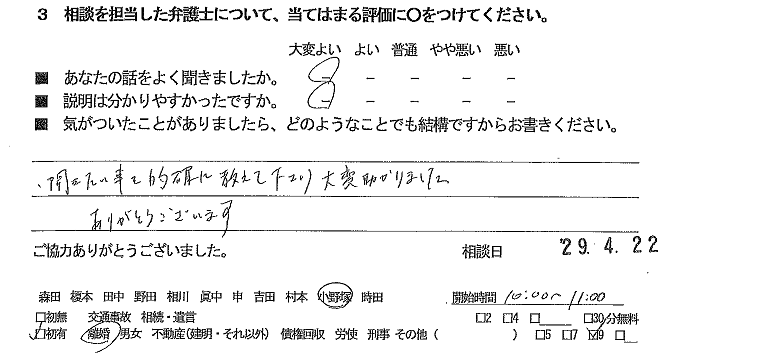 3 相談を担当した弁護士について、当てはまる評価に〇をつけてください。
大変よい よい 普通 やや悪い 悪い
■ あなたの話をよく聞きましたか。 － － － － －
■ 説明は分かりやすかったですか。 － － － － －
■ 気がついたことがありましたら、どのようなことでも結構ですからお書きください。
、聞きたい事を的確に教えて下さり大変助かりました
ありがとうございます
ご協力ありがとうございました。 相談日 '29. 4. 22
森田 榎本 田中 野田 相川 眞中 申 吉田 村本 小野塚 時田 開始時間 10:00～11:00
□初無 交通事故 相続・遺言 □2 □4 □ □30分無料
□初有 離婚 男女 不動産(建明・それ以外) 債権回収 労使 刑事 その他 ( ) □5 □7 ☑9 □